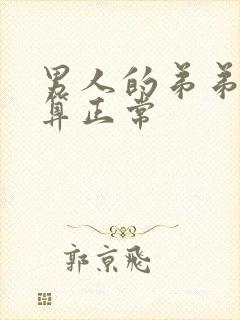 男人的弟弟
算正常
郭京飛